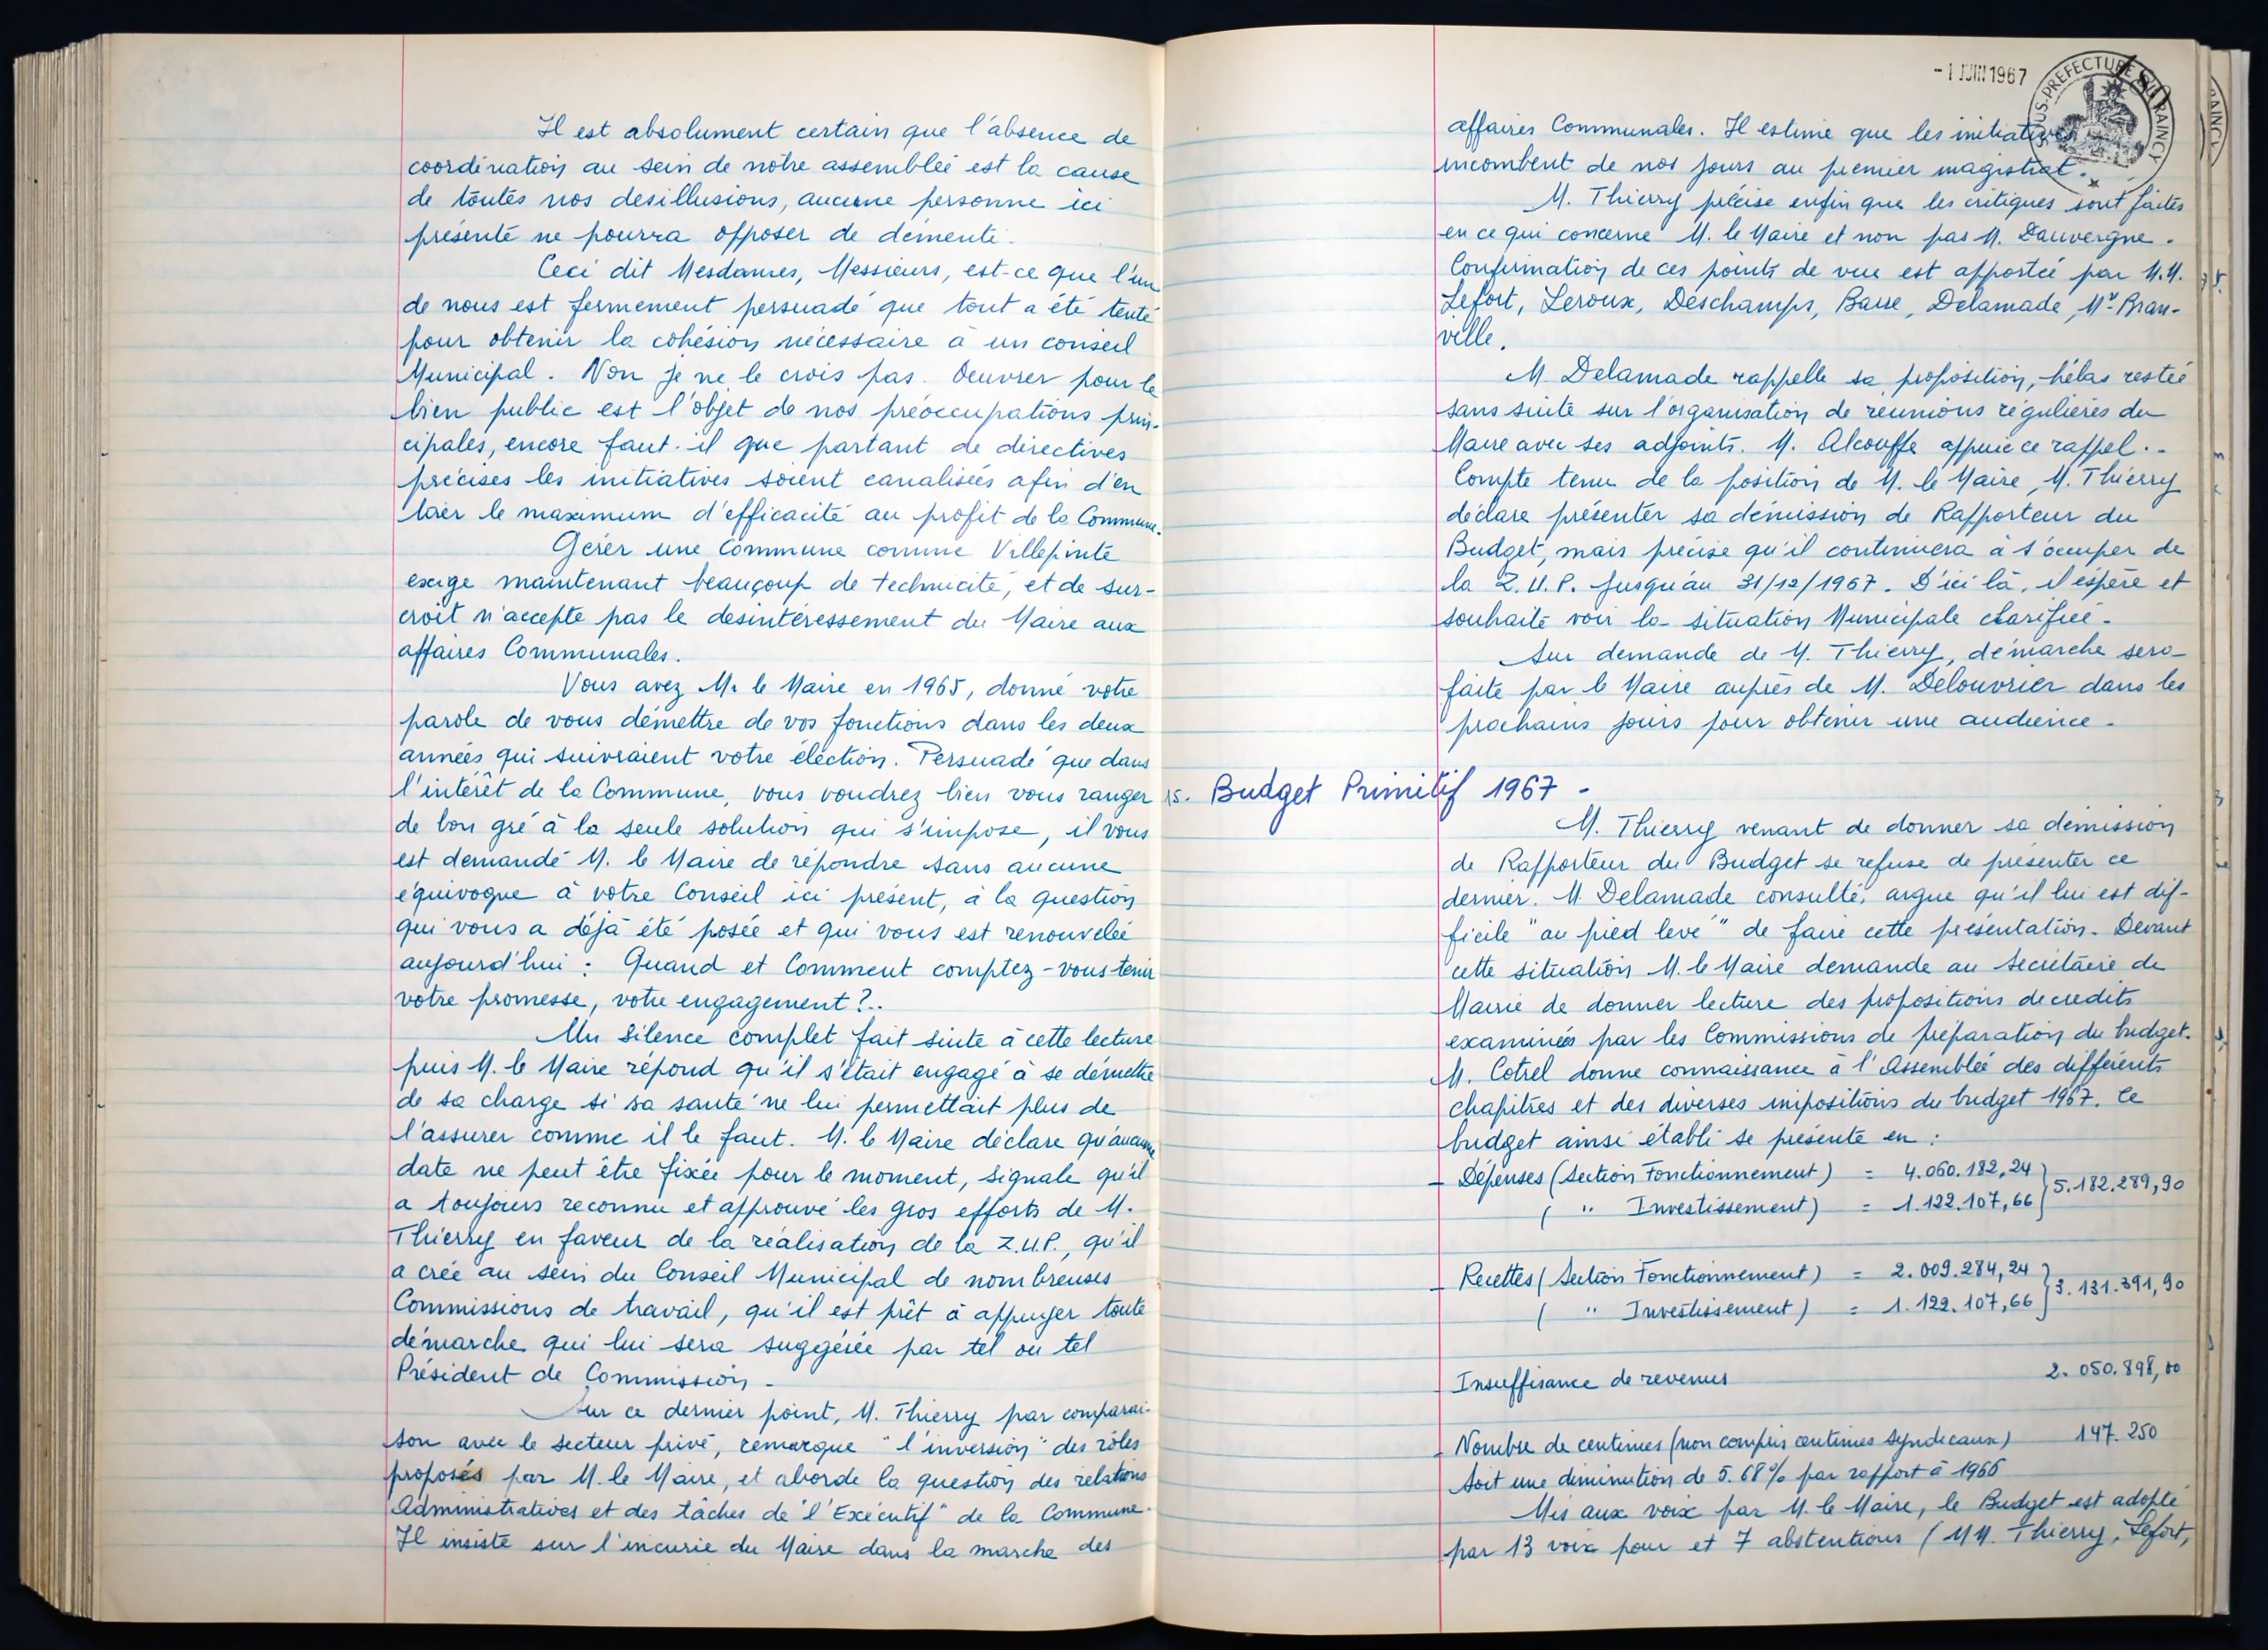 Il est absolument certain que l'absence de
coordination au sein de notre assemblée est la cause
de toutes nos desillusions, aucune personne ici
présente ne pourra opposer de démenti.
Ceci dit Mesdames, Messieurs, est-ce que l'un
de nous est fermement persuadé que tout a été tenté
pour obtenir la cohésion nécessaire à un conseil
Municipal. Non je ne le crois pas. Oeuvrer pour le
bien public est l'objet de nos préoccupations prin-
cipales, encore faut-il que partant de directives
précises les initiatives soient canalisées afin d'en
tirer le maximum d'efficacité au profit de la Commune.
Gérer une Commune comme Villepinte
exige maintenant beaucoup de technicité, et de sur-
croit n'accepte pas le desintéressement du Maire aux
affaires Communales.
Vous avez M. le Maire en 1965, donné votre
parole de vous démettre de vos fonctions dans les deux
années qui suivraient votre élection. Persuadé que dans
l'intérêt de la Commune, vous voudrez bien vous ranger
de bon gré à la seule solution qui s'impose, il vous
est demandé M. le Maire de répondre sans aucune
équivoque à votre Conseil ici présent, à la question
qui vous a déjà été posée et qui vous est renouvelée
aujourd'hui : Quand et Comment comptez-vous tenir
votre promesse, votre engagement ?..
Un silence complet fait suite à cette lecture
puis M. le Maire répond qu'il s'était engagé à se démettre
de sa charge si sa santé ne lui permettait plus de
l'assurer comme il le faut. M. le Maire déclare qu'aucune
date ne peut être fixée pour le moment, signale qu'il
a toujours reconnu et approuvé les gros efforts de M.
Thierry en faveur de la réalisation de la Z.U.P., qu'il
a crée au sein du Conseil Municipal de nombreuses
Commissions de travail, qu'il est prêt à appuyer toute
démarche qui lui sera suggérée par tel ou tel
Président de Commission -
Sur ce dernier point, M. Thierry par comparai-
son avec le secteur privé, remarque "l'inversion" des rôles
proposés par M. le Maire, et aborde la question des relations
Administratives et des tâches de "l'Exécutif" de la Commune.
Il insiste sur l'incurie du Maire dans la marche des
-1 JUIN 1967
SOUS-PREFECTURE DU RAINCY
affaires Communales. Il estime que les initiatives
incombent de nos jours au premier magistrat.
M. Thierry précise enfin que les critiques sont faites
en ce qui concerne M. le Maire et non pas M. Dauvergne.
Confirmation de ces points de vue est apportée par M.M.
Lefort, Leroux, Deschamps, Basse, Delamade, Mr Bran-
ville.
M. Delamade rappelle sa proposition, hélas restée
sans suite sur l'organisation de réunions régulières du
Maire avec ses adjoints. M. Alcouffe appuie ce rappel..
Compte tenu de la position de M. le Maire, M. Thierry
déclare présenter sa démission de Rapporteur du
Budget, mais précise qu'il continuera à s'occuper de
la Z.U.P. jusqu'au 31/12/1967. D'ici là, il espère et
souhaite voir la situation Municipale clarifiée -
Sur demande de M. Thierry, démarche sera
faite par le Maire auprès de M. Delouvrier dans les
prochains jours pour obtenir une audience -
15. Budget Primitif 1967 -
M. Thierry venant de donner sa démission
de Rapporteur du Budget se refuse de présenter ce
dernier. M. Delamade consulté, argue qu'il lui est dif-
ficile "au pied levé" de faire cette présentation. Devant
cette situation M. le Maire demande au Secrétaire de
Mairie de donner lecture des propositions de credits
examinées par les Commissions de préparation du budget.
M. Cotrel donne connaissance à l'Assemblée des différents
chapitres et des diverses impositions du budget 1967. Ce
budget ainsi établi se présente en :
- Dépenses (Section Fonctionnement) = 4.060.182,24 } 5.182.289,90
( " Investissement) = 1.122.107,66
- Recettes (Section Fonctionnement) = 2.009.284,24 } 3.131.391,90
( " Investissement) = 1.122.107,66
- Insuffisance de revenus 2.050.898,00
- Nombre de centimes (non compris centimes syndicaux) 147.250
soit une diminution de 5.68% par rapport à 1966
Mis aux voix par M. le Maire, le Budget est adopté
par 13 voix pour et 7 abstentions (MM. Thierry, Lefort,